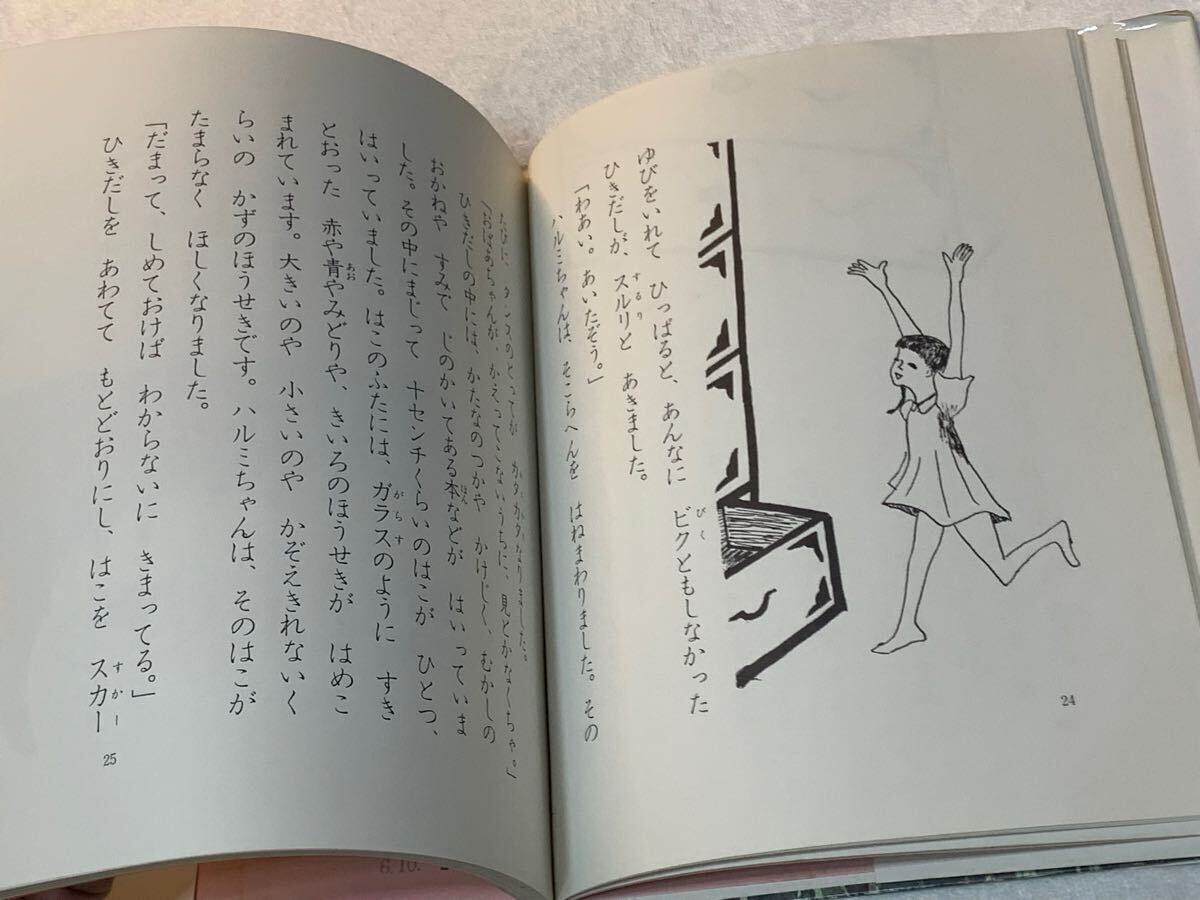 ゆびをいれて ひっぱると、あんなに ビクともしなかった
ひきだしが、スルリと あきました。
「わあい。あいたぞう。」
ハルミちゃんは、そこらへんを はねまわりました。その
24
たびに、タンスのとってが カタカタなりました。
「おばあちゃんが、かえってこないうちに、見とかなくちゃ。」
ひきだしの中には、かたなのつかや かけじく、むかしの
おかねや すみで じのかいてある本などが はいっていま
した。その中にまじって 十センチくらいのはこが ひとつ、
はいっていました。はこのふたには、ガラスのように すき
とおった 赤や青やみどりや、きいろのほうせきが はめこ
まれています。大きいのや 小さいのや かぞえきれないく
らいの かずのほうせきです。ハルミちゃんは、そのはこが
たまらなく ほしくなりました。
「だまって、しめておけば わからないに きまってる。」
ひきだしを あわてて もとどおりにし、はこを スカー
25
6.10.